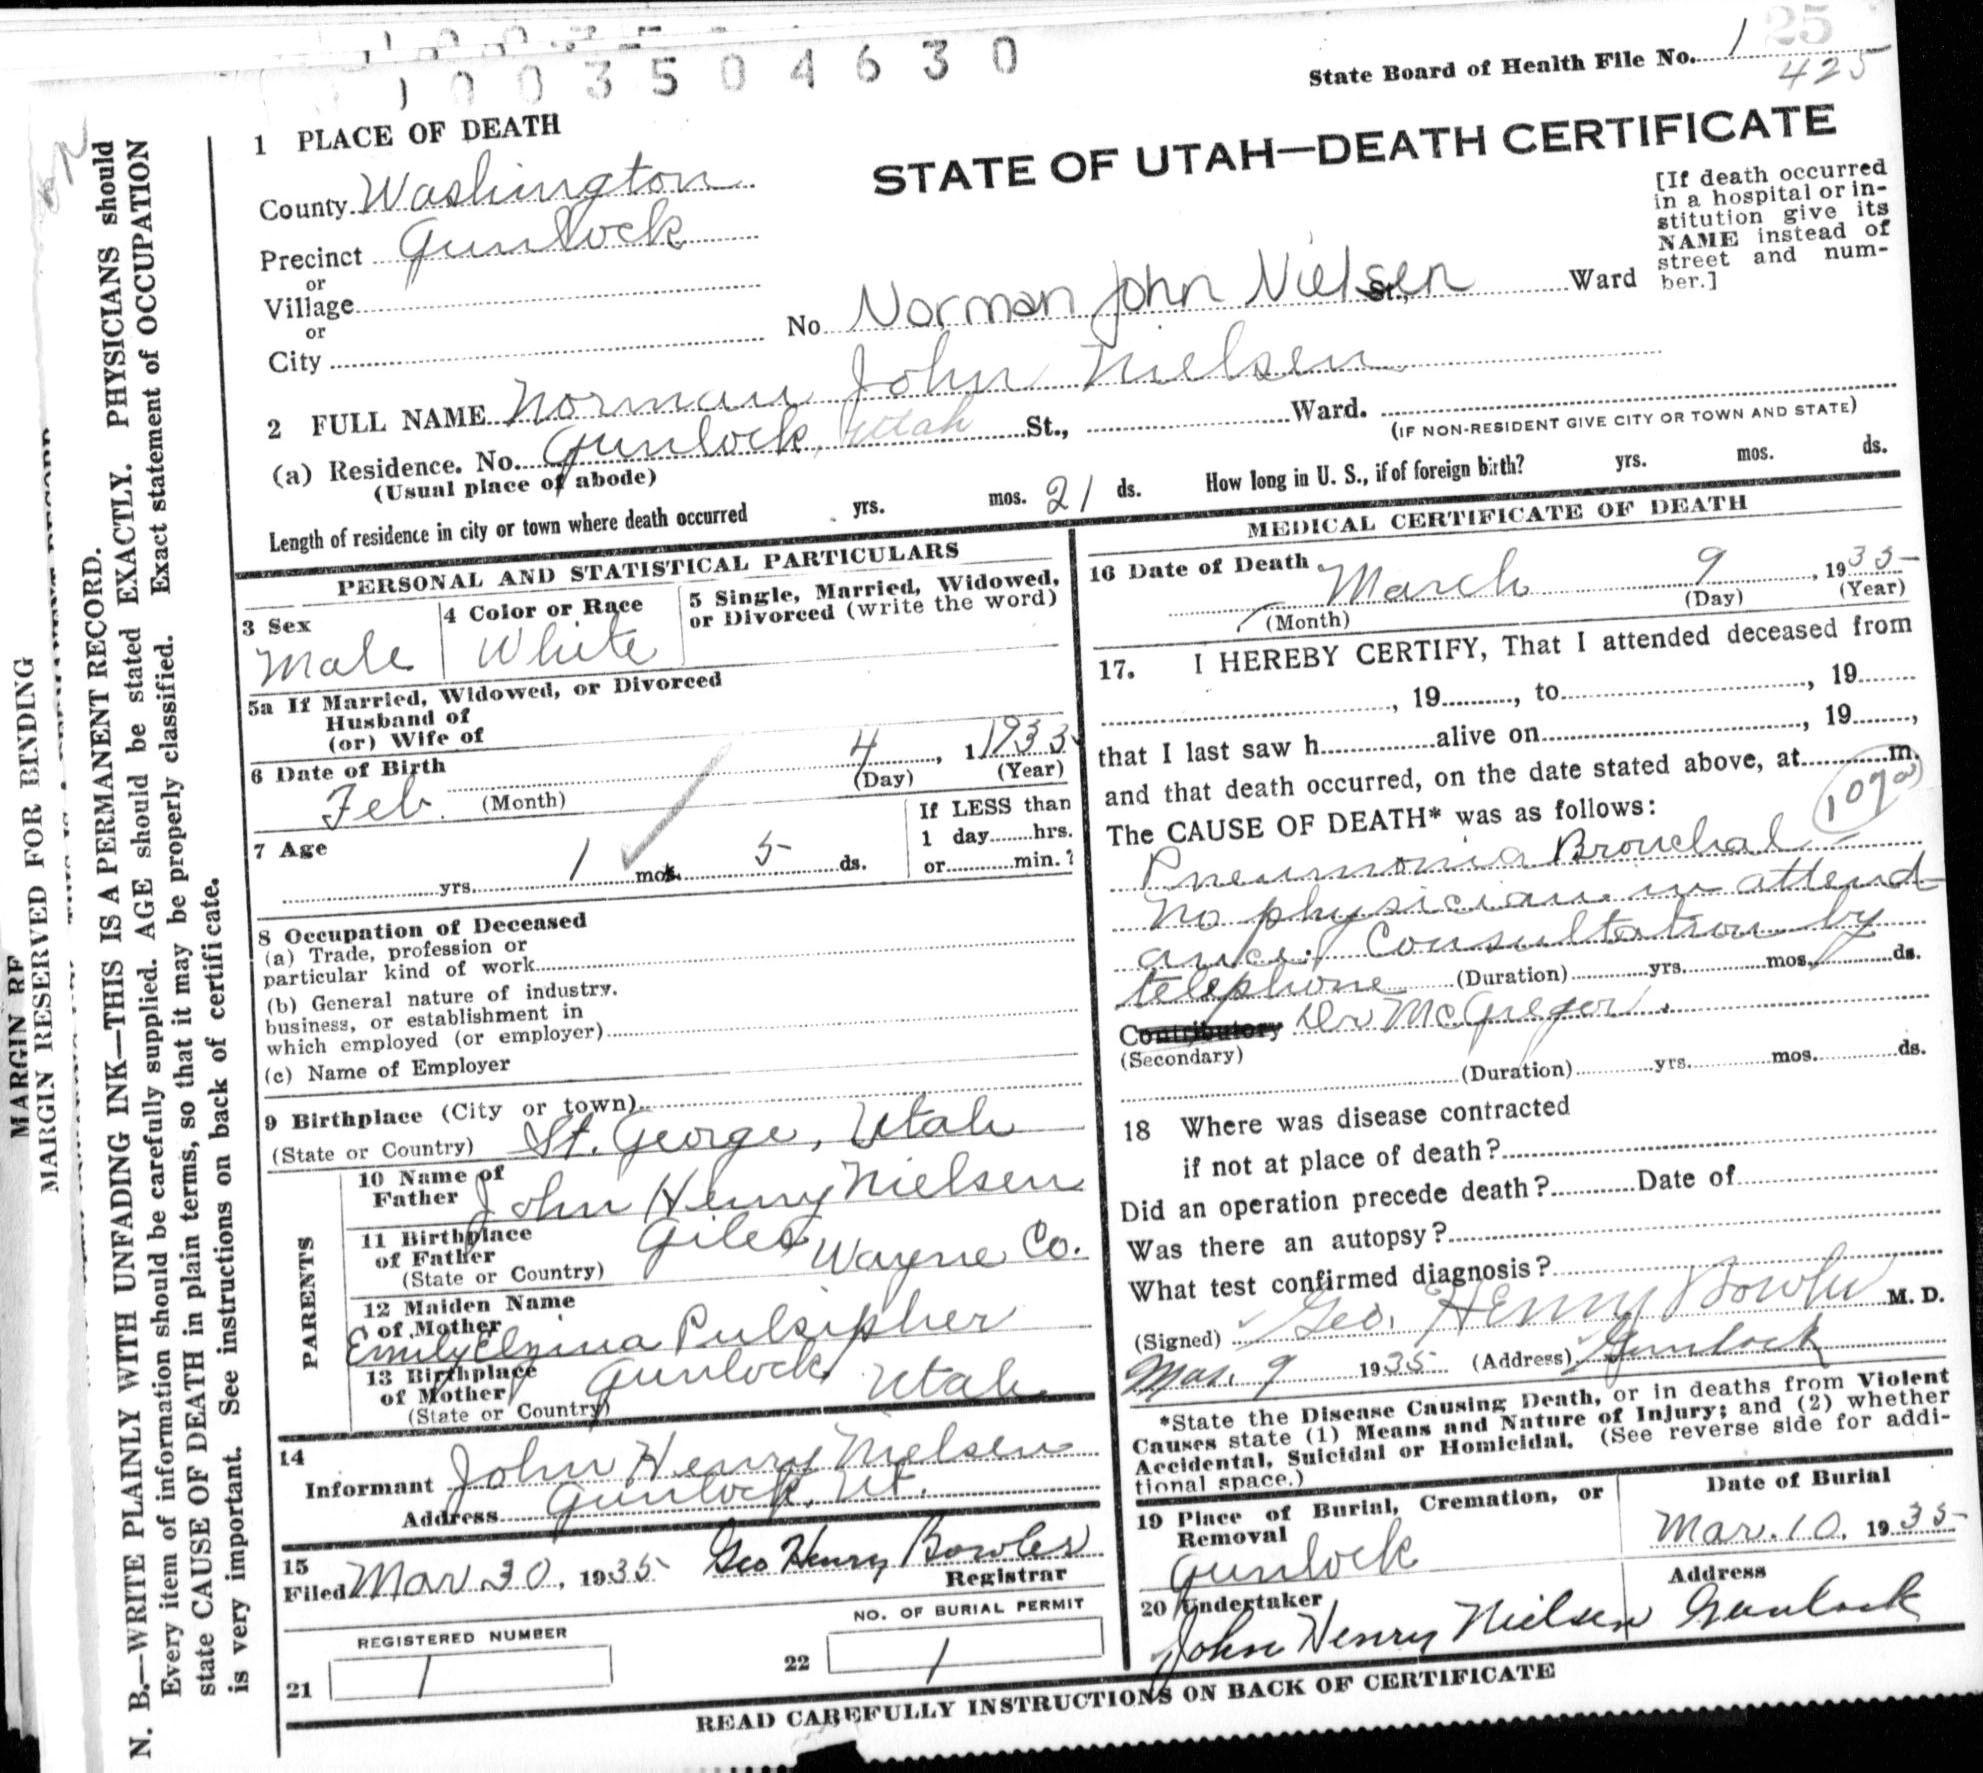 1003504630
State Board of Health File No. 1 25
425
1 PLACE OF DEATH
STATE OF UTAH—DEATH CERTIFICATE
County Washington
Precinct Gunlock
or
Village
or
City
No. Norman John Nielsen St., Ward
[If death occurred
in a hospital or in-
stitution give its
NAME instead of
street and num-
ber.]
2 FULL NAME Norman John Nielsen
(a) Residence. No. Gunlock, Utah St., Ward.
(Usual place of abode)
(IF NON-RESIDENT GIVE CITY OR TOWN AND STATE)
Length of residence in city or town where death occurred yrs. mos. 21 ds. How long in U. S., if of foreign birth? yrs. mos. ds.
PERSONAL AND STATISTICAL PARTICULARS
3 Sex
Male
4 Color or Race
White
5 Single, Married, Widowed,
or Divorced (write the word)
5a If Married, Widowed, or Divorced
Husband of
(or) Wife of
6 Date of Birth
Feb. 4, 1 1935
(Month) (Day) (Year)
7 Age
yrs. 1 mos. 5 ds.
If LESS than
1 day hrs.
or min.?
8 Occupation of Deceased
(a) Trade, profession or
particular kind of work
(b) General nature of industry.
business, or establishment in
which employed (or employer)
(c) Name of Employer
9 Birthplace (City or town)
(State or Country) St. George, Utah
PARENTS
10 Name of
Father John Henry Nielsen
11 Birthplace
of Father Giles Wayne Co.
(State or Country)
12 Maiden Name
of Mother
Emily Elzina Pulsipher
13 Birthplace
of Mother Gunlock, Utah
(State or Country)
14
Informant John Henry Nielsen
Address Gunlock, Ut.
15
Filed Mar 30, 1935 Geo Henry Bowles
Registrar
REGISTERED NUMBER
21 1
NO. OF BURIAL PERMIT
22 1
MEDICAL CERTIFICATE OF DEATH
16 Date of Death
March 9, 1935
(Month) (Day) (Year)
17. I HEREBY CERTIFY, That I attended deceased from
, 19 , to , 19
that I last saw h alive on , 19 ,
and that death occurred, on the date stated above, at m.
The CAUSE OF DEATH* was as follows:
107a
Pneumonia Bronchal
No physician in attend
ance. Consultation by
telephone (Duration) yrs. mos. ds.
Contributory Dr McGregor.
(Secondary)
(Duration) yrs. mos. ds.
18 Where was disease contracted
if not at place of death?
Did an operation precede death? Date of
Was there an autopsy?
What test confirmed diagnosis?
(Signed) Geo. Henry Bowler M. D.
Mar. 9 1935 (Address) Gunlock
*State the Disease Causing Death, or in deaths from Violent
Causes state (1) Means and Nature of Injury; and (2) whether
Accidental, Suicidal or Homicidal. (See reverse side for addi-
tional space.)
19 Place of Burial, Cremation, or
Removal
Gunlock
Date of Burial
Mar. 10, 1935
20 Undertaker
John Henry Nielsen
Address
Gunlock
READ CAREFULLY INSTRUCTIONS ON BACK OF CERTIFICATE
MARGIN RE
MARGIN RESERVED FOR BINDING
N. B.—WRITE PLAINLY WITH UNFADING INK—THIS IS A PERMANENT RECORD.
Every item of information should be carefully supplied. AGE should be stated EXACTLY. PHYSICIANS should
state CAUSE OF DEATH in plain terms, so that it may be properly classified. Exact statement of OCCUPATION
is very important. See instructions on back of certificate.